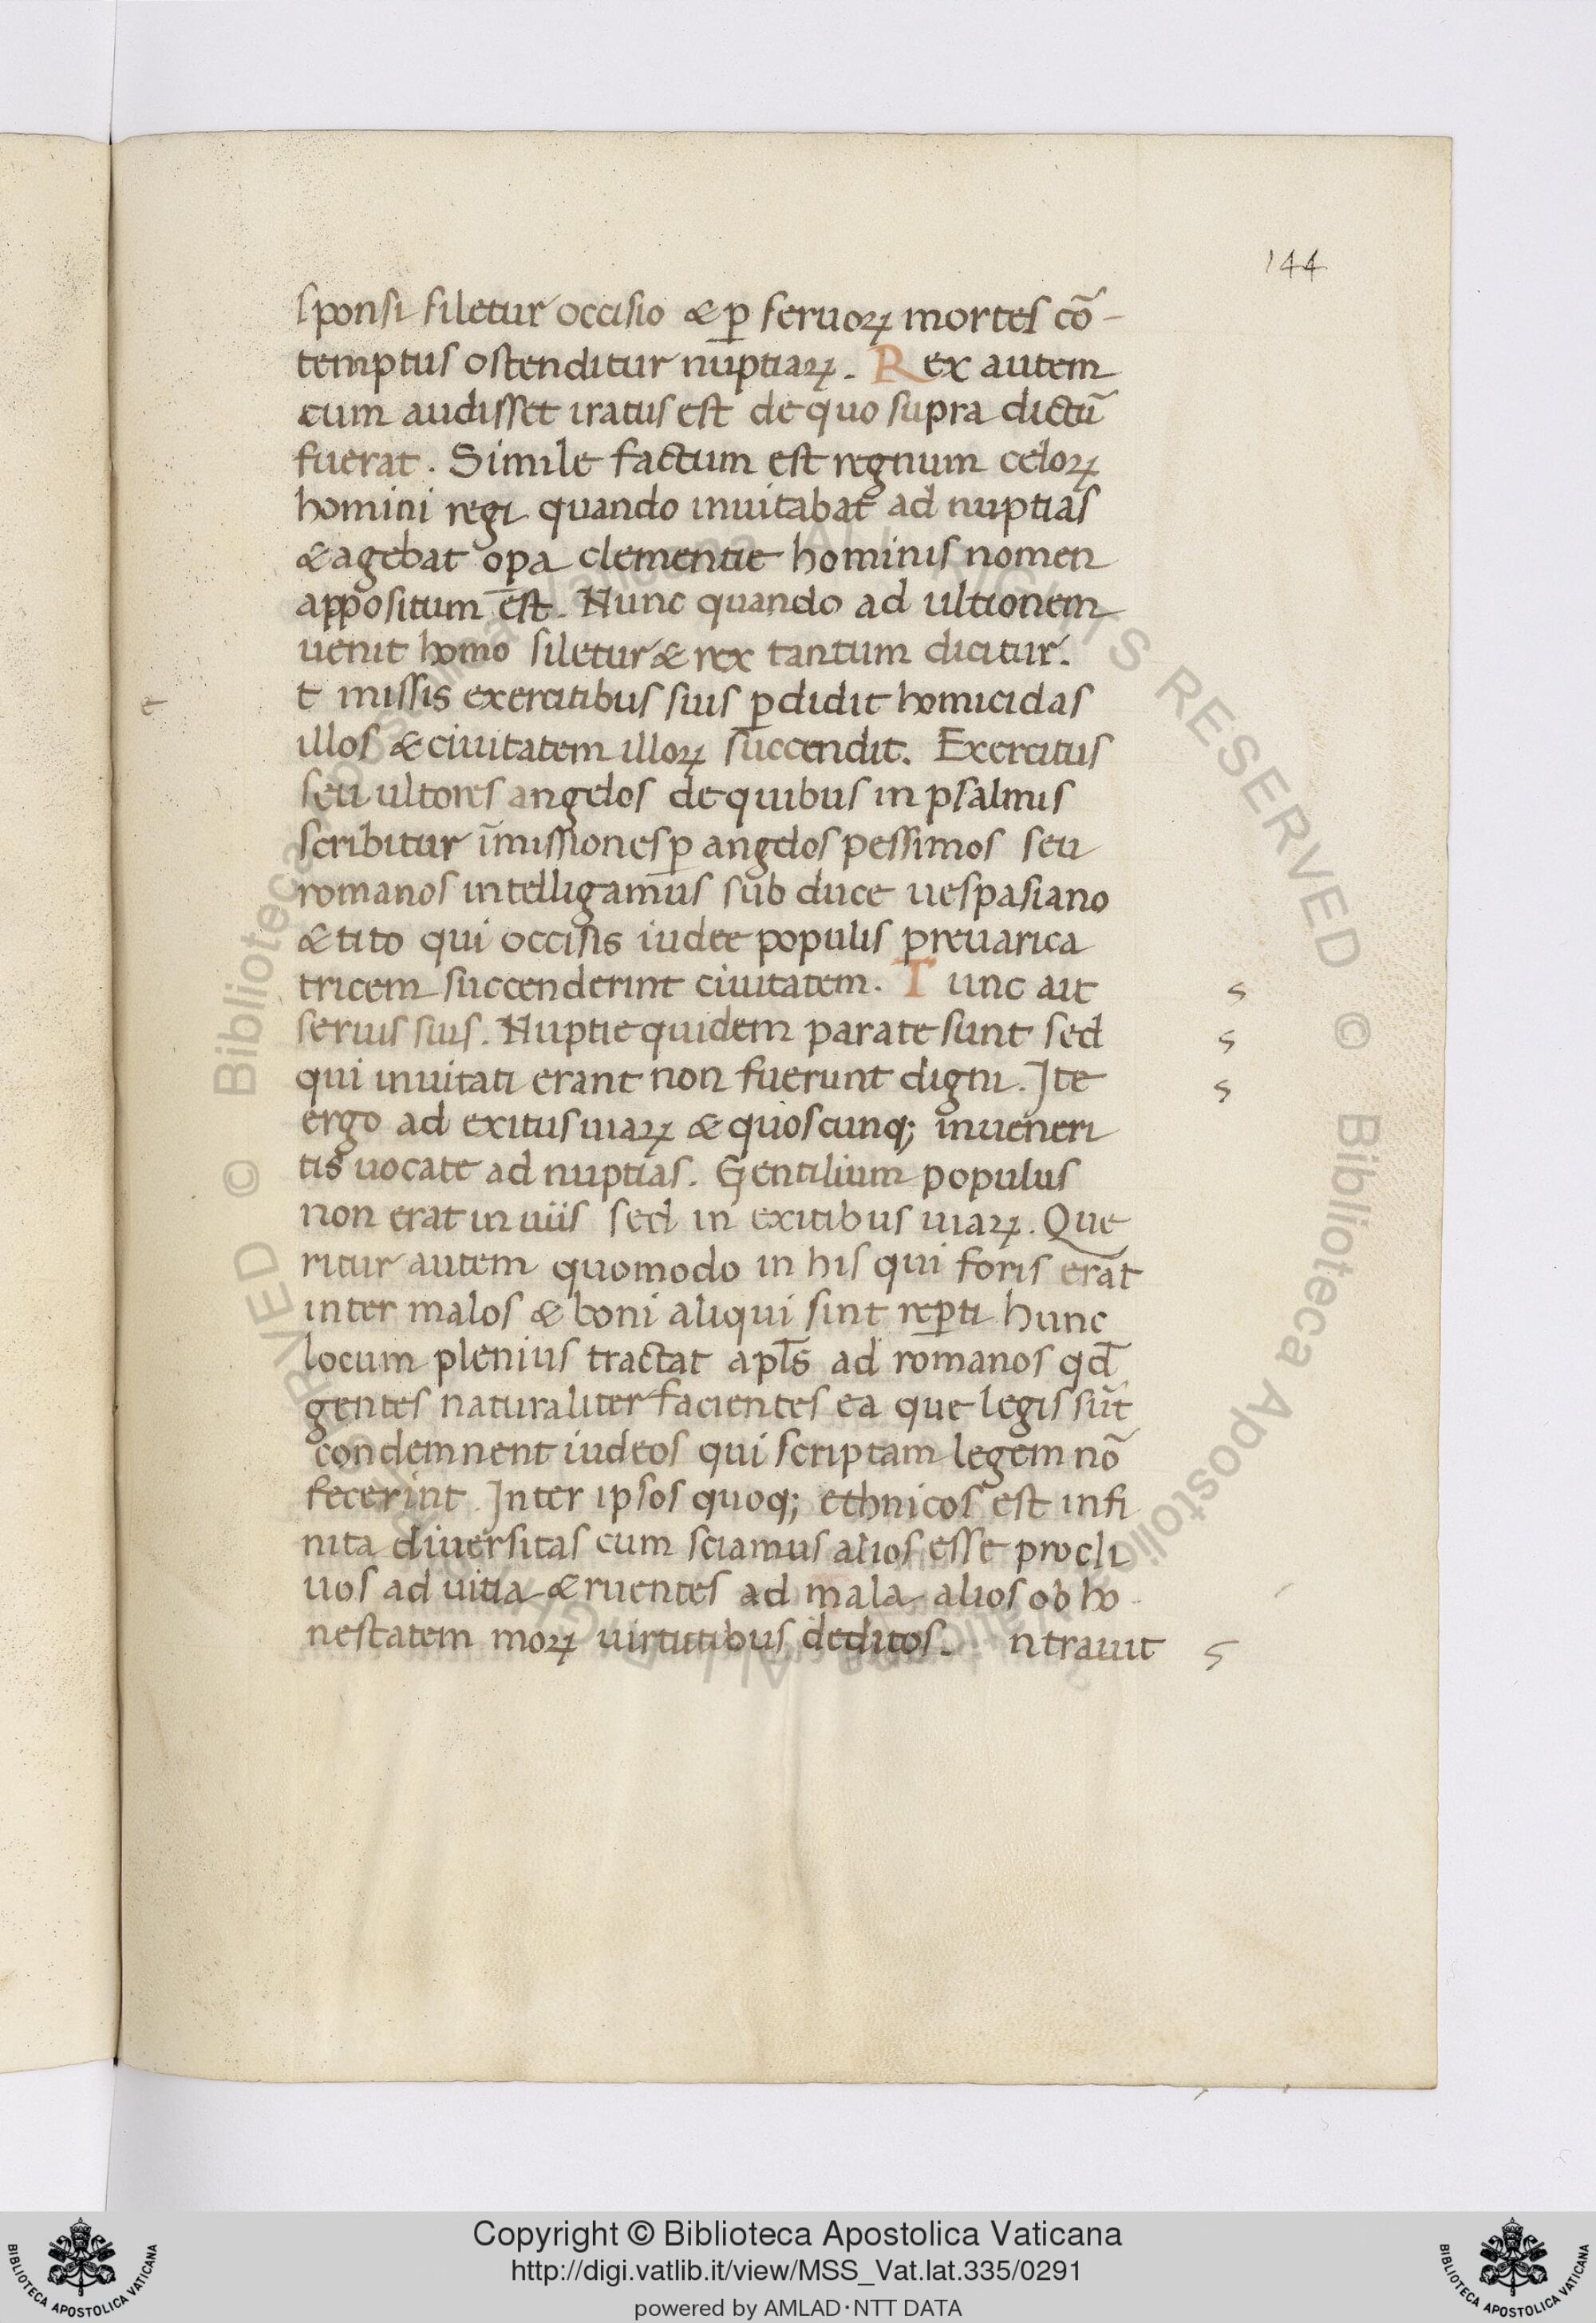 144
sponsi siletur occisio & ꝑ seruoꝝ mortes cō-
temptus ostenditur nuptiaꝝ. Rex autem
cum audisset iratus est de quo supra dictū
fuerat. Simile factum est regnum celoꝝ
homini regi quando inuitabat ad nuptias
& agebat oꝑa clementie hominis nomen
appositum est. Nunc quando ad ultionem
uenit homo siletur & rex tantum dicitur.
e
t missis exercitibus suis ꝑdidit homicidas
illos & ciuitatem illoꝝ succendit. Exercitus
seu ultores angelos de quibus in psalmis
scribitur īmissiones ꝑ angelos pessimos seu
romanos intelligamus sub duce uespasiano
& tito qui occisis iudee populis preuarica
tricem succenderint ciuitatem. Tunc ait
seruis suis. Nuptie quidem parate sunt sed
qui inuitati erant non fuerunt digni. Ite
ergo ad exitus uiaꝝ & quoscunq; inueneri
tis uocate ad nuptias. Gentilium populus
non erat in uiis sed in exitibus uiaꝝ. Que
ritur autem quomodo in his qui foris erāt
inter malos & boni aliqui sint reꝑti hunc
locum plenius tractat apl̄s ad romanos qd̄
gentes naturaliter facientes ea que legis sūt
condemnent iudeos qui scriptam legem nō
fecerint. Inter ipsos quoq; ethnicos est infi
nita diuersitas cum sciamus alios esse procli
uos ad uitia & ruentes ad mala alios ob ho-
nestatem moꝝ uirtutibus deditos. ntrauit
© Biblioteca Apostolica Vaticana ALL RIGHTS RESERVED
© Biblioteca Apostolica Vaticana ALL RIGHTS RESERVED
BIBLIOTECA APOSTOLICA VATICANA
Copyright © Biblioteca Apostolica Vaticana
http://digi.vatlib.it/view/MSS_Vat.lat.335/0291
powered by AMLAD·NTT DATA
BIBLIOTECA APOSTOLICA VATICANA